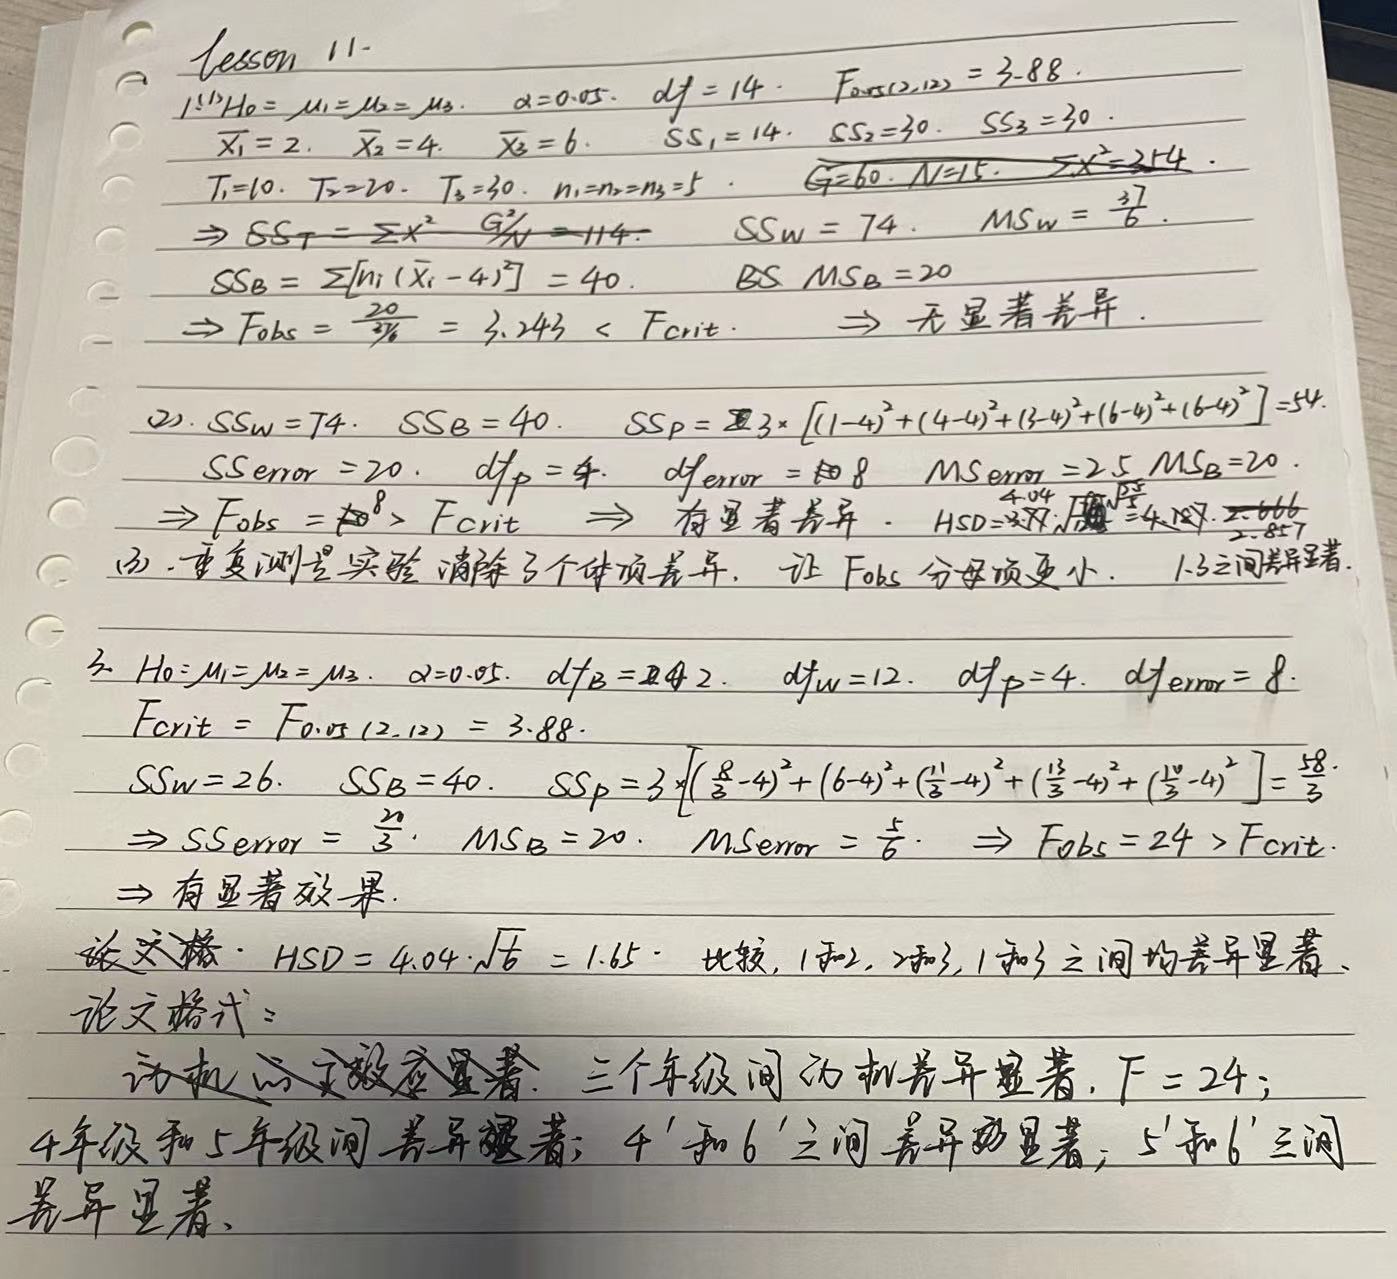 Lesson 11.
1.(1) H0 = μ1 = μ2 = μ3. α=0.05. df = 14. F0.05(2,12) = 3.88.
X̄1 = 2. X̄2 = 4. X̄3 = 6. SS1 = 14. SS2 = 30. SS3 = 30.
T1=10. T2=20. T3=30. n1=n2=n3=5. G=60. N=15. ΣX²=354.
⇒ SST = ΣX² G²/N = 114. SSW = 74. MSW = 37/6.
SSB = Σ[ni(X̄i-4)²] = 40. BS MSB = 20
⇒ Fobs = 20/(37/6) = 3.243 < Fcrit. ⇒ 无显著差异.
(2). SSW = 74. SSB = 40. SSP = 3×[(1-4)²+(4-4)²+(3-4)²+(6-4)²+(6-4)²]=54.
SSerror = 20. dfp = 4. dferror = 8 MSerror = 2.5 MSB=20.
⇒ Fobs = 8 > Fcrit ⇒ 有显著差异. HSD = 4.04 2.857
(3). 重复测量实验消除了个体项差异. 让 Fobs 分母项更小. 1.3之间差异显著.
3. H0: μ1 = μ2 = μ3. α=0.05. dfB = 2. dfW = 12. dfp = 4. dferror = 8.
Fcrit = F0.05(2,12) = 3.88.
SSW = 26. SSB = 40. SSP = 3×[(8/3-4)²+(6-4)²+(11/3-4)²+(13/3-4)²+(10/3-4)²]=58/3.
⇒ SSerror = 20/3. MSB = 20. MSerror = 5/6. ⇒ Fobs = 24 > Fcrit.
⇒ 有显著效果.
论文格. HSD = 4.04·√(1/6) = 1.65. 比较, 1和2, 2和3, 1和3 之间均差异显著.
论文格式:
动机的主效应显著. 三个年级间动机差异显著, F = 24;
4年级和5年级间差异显著; 4'和6'之间差异显著; 5'和6'之间
差异显著.